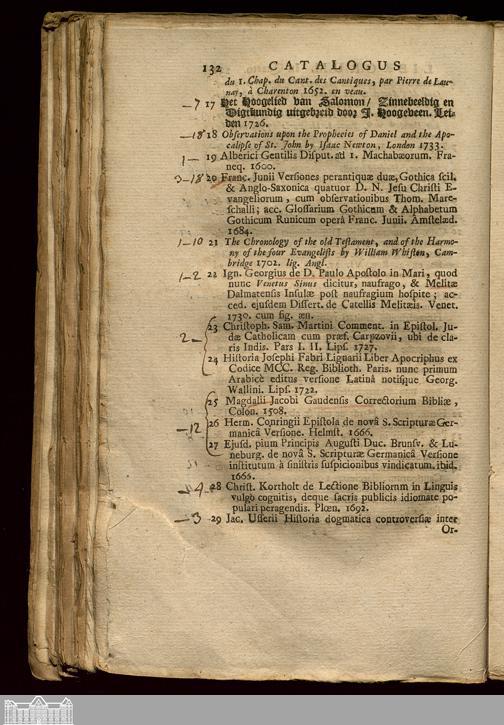 132 CATALOGUS
du 1. Chap. du Cant. des Cantiques, par Pierre de Lau-
nay, à Charenton 1652. en veau.
—7 17 Het Hoogelied van Salomon/ Zinnebeeldig en
Digtkundig uitgebreid door J. Hoogeveen. Lei-
den 1726.
—18 18 Observations upon the Prophecies of Daniel and the Apo-
calipse of St. John by Isaac Newton, London 1733.
1— 19 Alberici Gentilis Disput. ad 1. Machabæorum. Fra-
neq. 1600.
3—18 20 Franc. Junii Versiones perantiquæ duæ, Gothica scil.
& Anglo-Saxonica quatuor D. N. Jesu Christi E-
vangeliorum, cum observationibus Thom. Mare-
schalli; acc. Glossarium Gothicum & Alphabetum
Gothicum Runicum operâ Franc. Junii. Amstelæd.
1684.
1—10 21 The Chronology of the old Testament, and of the Harmo-
ny of the four Evangelists by William Whiston, Cam-
bridge 1702. lig. Angl.
1—2 22 Ign. Georgius de D. Paulo Apostolo in Mari, quod
nunc Venetus Sinus dicitur, naufrago, & Melitæ
Dalmatensis Insulæ post naufragium hospite; ac-
ced. ejusdem Dissert. de Catellis Melitæis. Venet.
1730. cum fig. æn.
2— 23 Christoph. Sam. Martini Comment. in Epistol. Ju-
dæ Catholicam cum præf. Carpzovii, ubi de cla-
ris Indis. Pars I. II. Lips. 1727.
24 Historia Josephi Fabri Lignarii Liber Apocriphus ex
Codice MCC. Reg. Biblioth. Paris. nunc primum
Arabicè editus versione Latinâ notisque Georg.
Wallini. Lips. 1722.
25 Magdalii Jacobi Gaudensis Correctorium Bibliæ,
Colon. 1508.
—12 26 Herm. Conringii Epistola de novâ S. Scripturæ Ger-
manicâ Versione. Helmst. 1666.
27 Ejusd. pium Principis Augusti Duc. Brunsv. & Lu-
neburg. de novâ S. Scripturæ Germanicâ Versione
institutum à sinistris suspicionibus vindicatum. ibid.
1666.
—4 28 Christ. Kortholt de Lectione Bibliorum in Linguis
vulgò cognitis, deque sacris publicis idiomate po-
pulari peragendis. Plœn. 1692.
—3 29 Jac. Usserii Historia dogmatica controversiæ inter
Or-